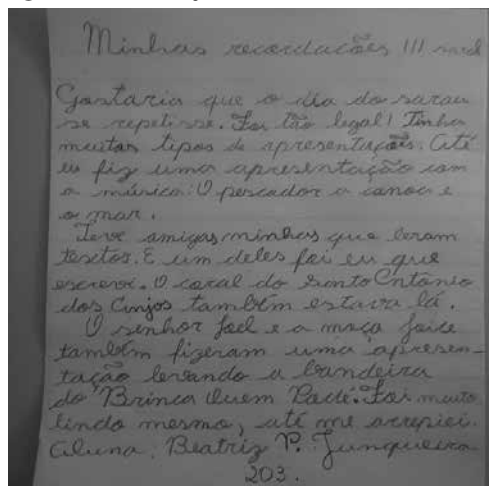 Minhas recordações !!!
Gostaria que o dia do sarau
se repetisse. Foi tão legal! Tinha
muitos tipos de apresentações. Até
eu fiz uma apresentação com
a música: O pescador a canoa e
o mar.
Teve amigas minhas que leram
textos. E um deles foi eu que
escrevi. O coral do Santo Antonio
dos Anjos também estava lá.
O senhor Joel e a moça Joice
também fizeram uma apresen-
tação levando a bandeira
do Brinca Quem Pode. Foi muito
lindo mesmo, até me arrepiei.
Aluna, Beatriz P. Junqueira
203.